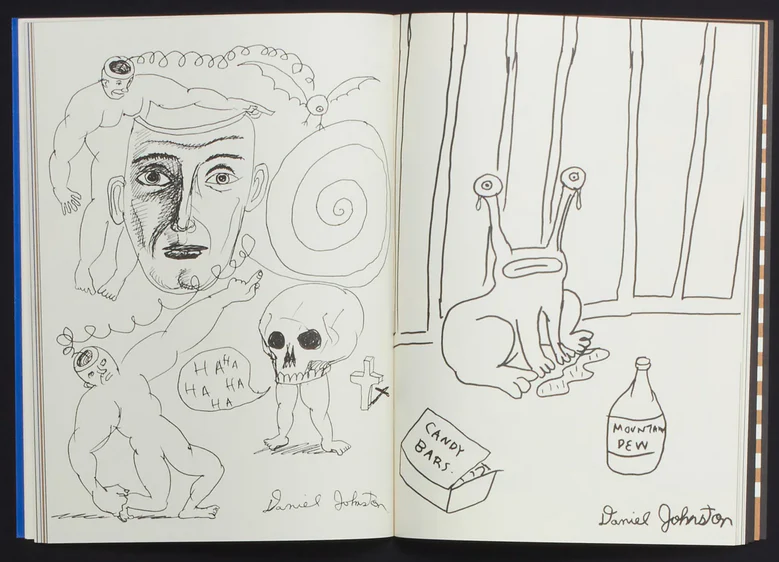 HA HA
HA HA
HA
Daniel Johnston
CANDY
BARS.
MOUNTAIN
DEW
Daniel Johnston